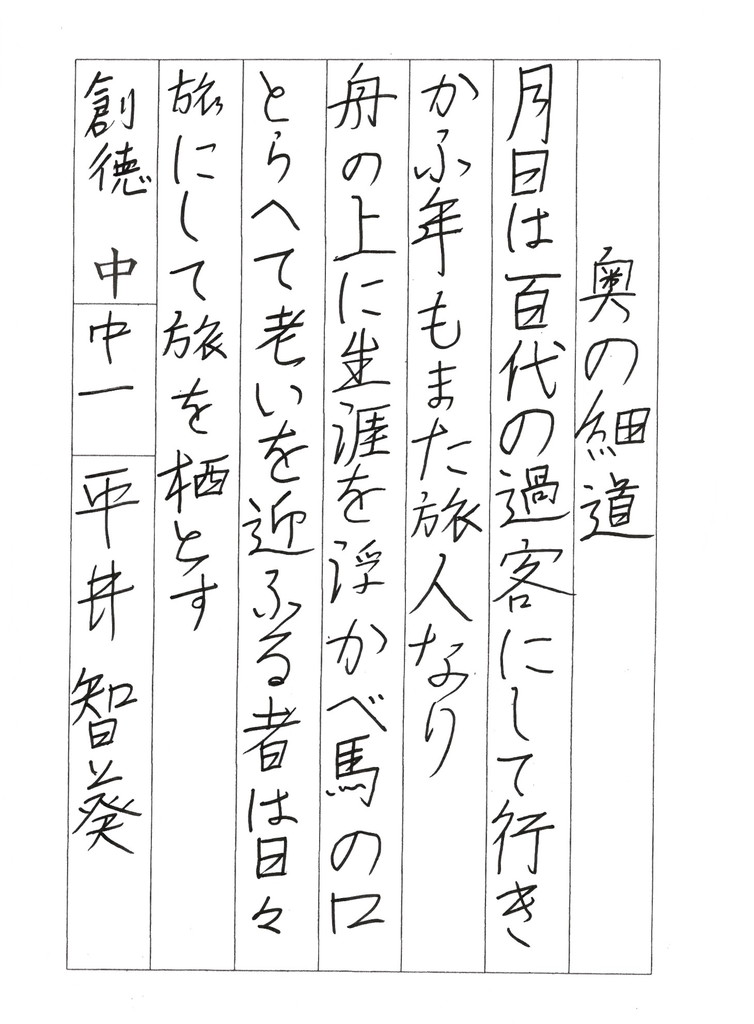 奥の細道
月日は百代の過客にして行き
かふ年もまた旅人なり
舟の上に生涯を浮かべ馬の口
とらへて老いを近ふる者は日々
旅にして旅を栖とす
創徳 中
中一
平井 智葵